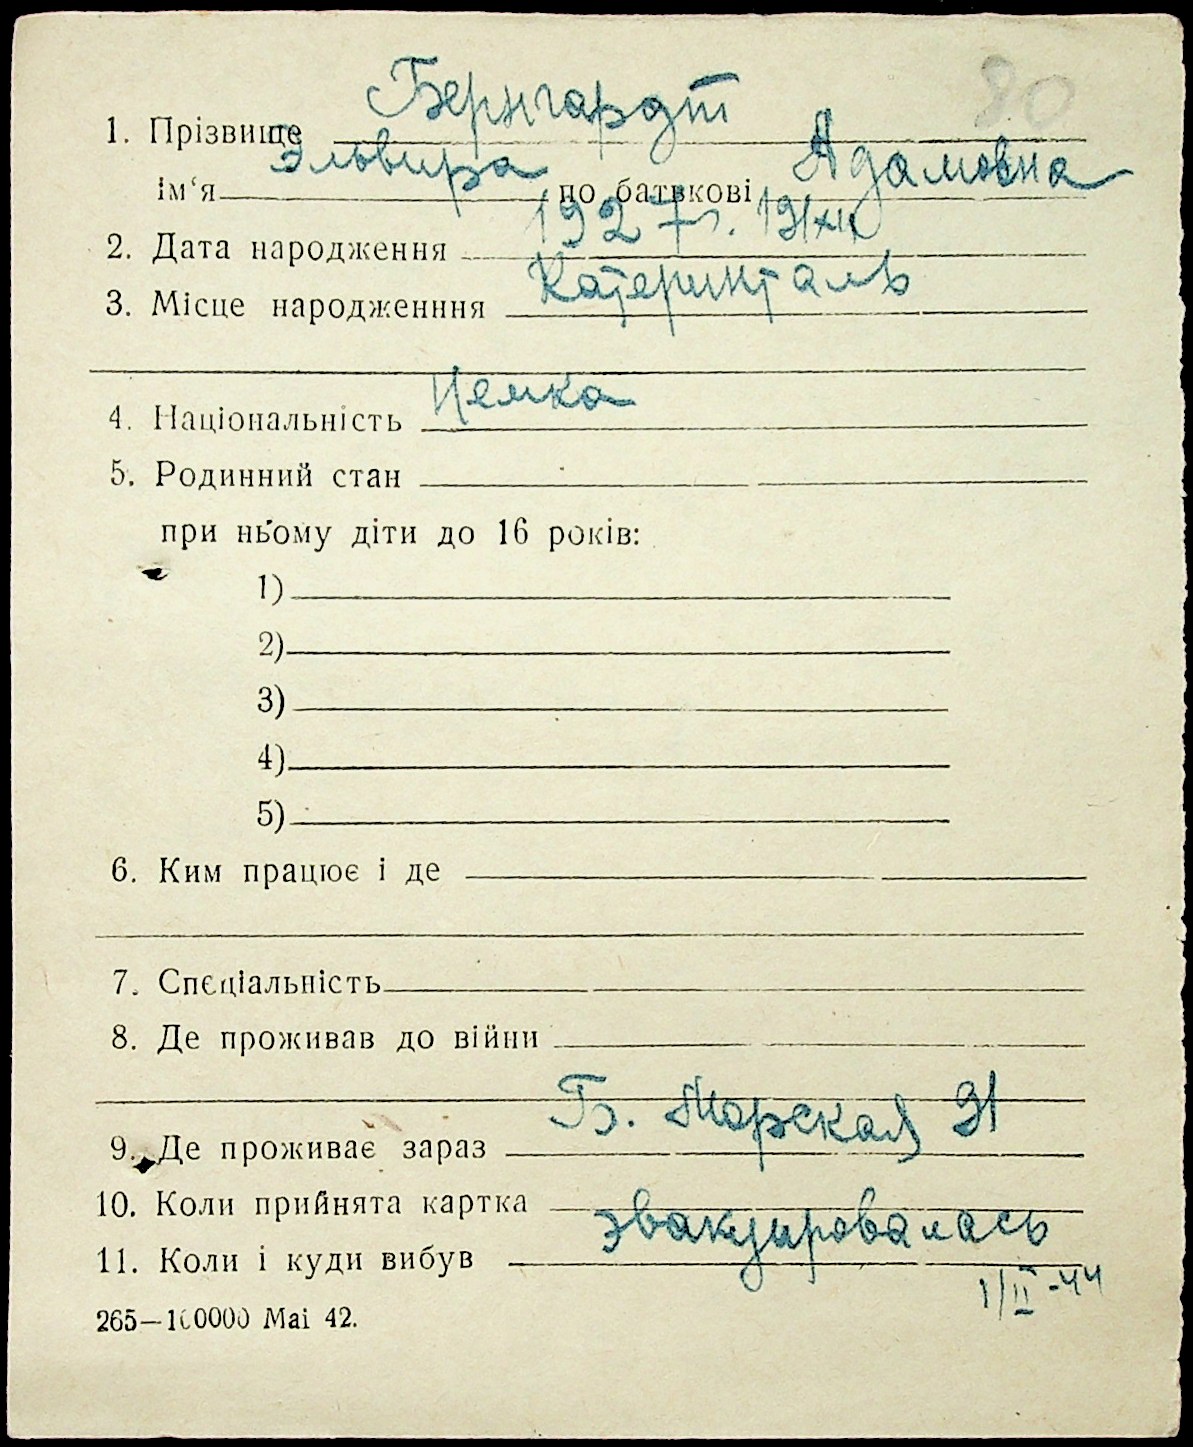 80
1. Прізвище Бернгардт
ім‘я Эльвира по батькові Адамовна
2. Дата народження 1927 г. 19/XII
3. Місце народженння Катеринталь
4. Національність Немка
5. Родинний стан
при ньому діти до 16 років:
1)
2)
3)
4)
5)
6. Ким працює і де
7. Спеціальність
8. Де проживав до війни
9. Де проживає зараз Б. Морская 91
10. Коли прийнята картка
11. Коли і куди вибув эвакуировалась
1/II-44
265—100000 Маі 42.